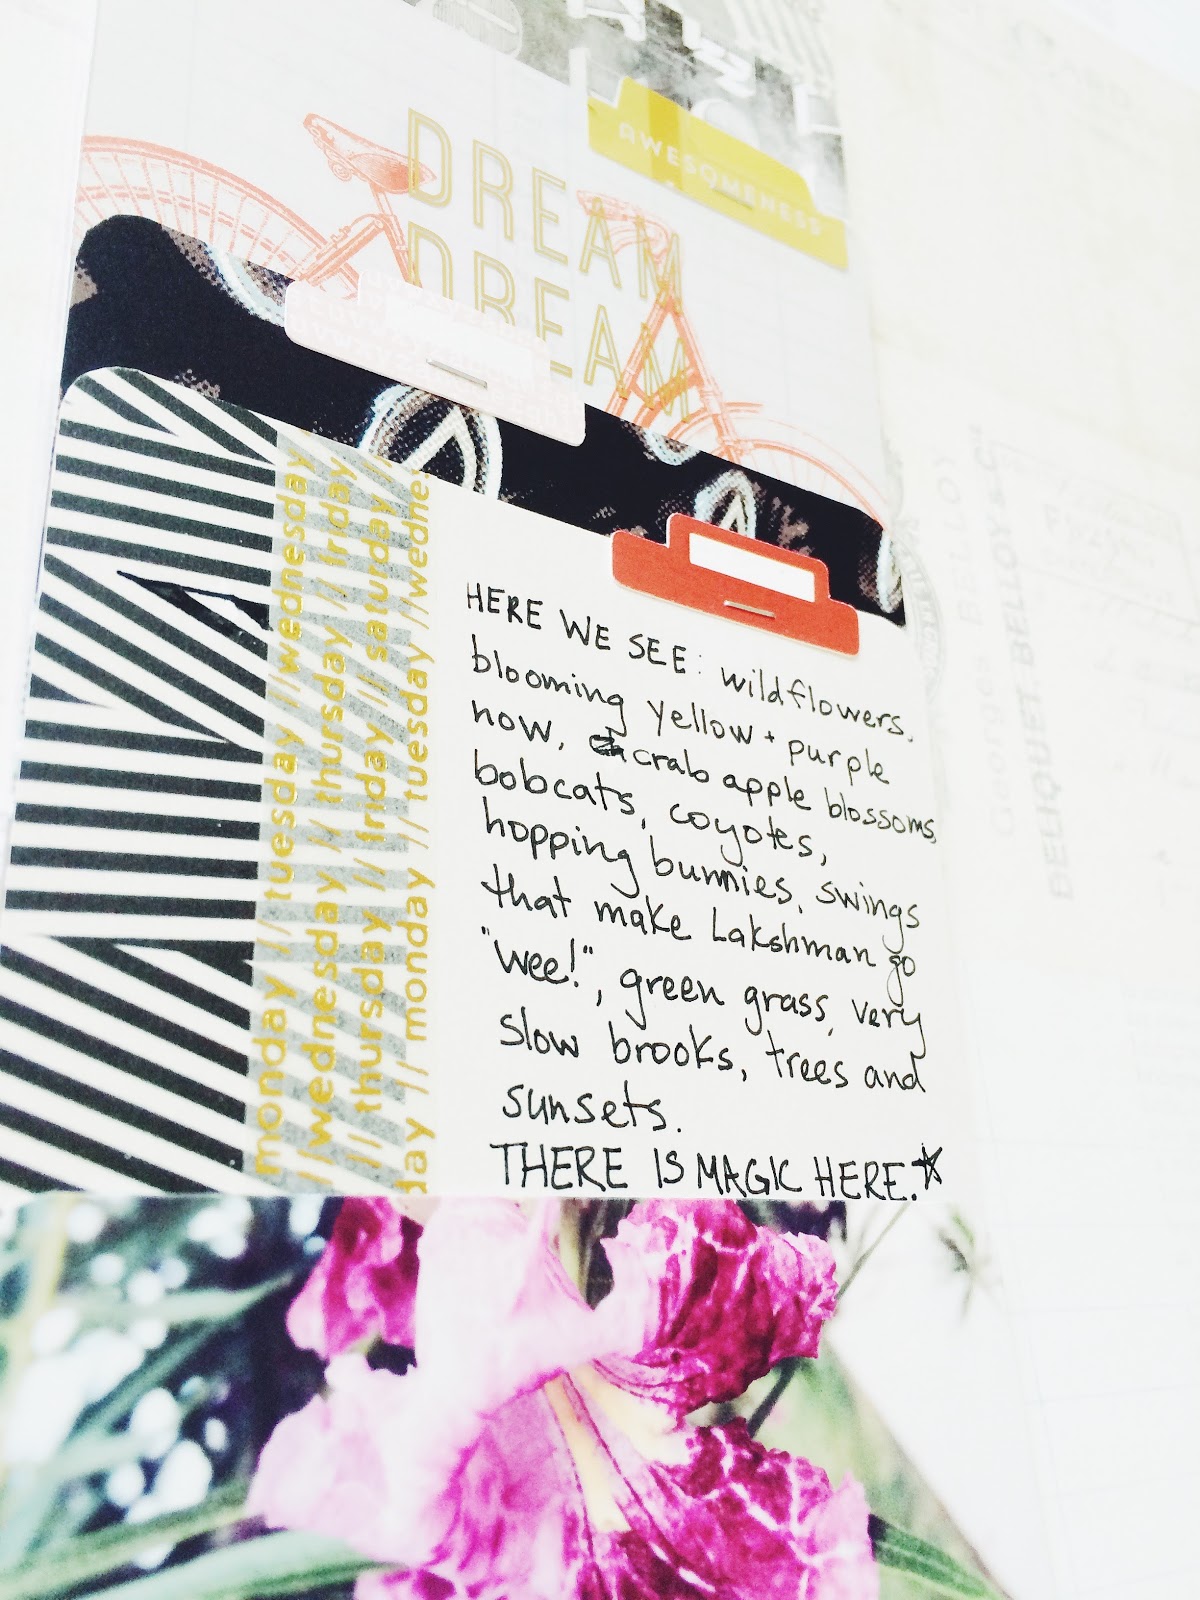 AWESOMENESS
DREAM
DREAM
HERE WE SEE: wildflowers,
blooming yellow + purple
now, crab apple blossoms,
bobcats, coyotes,
hopping bunnies, swings
that make Lakshman go
"wee!", green grass, very
slow brooks, trees and
sunsets.
THERE IS MAGIC HERE.
monday // tuesday // wednesday
// wednesday // thursday // friday
// thursday // friday // saturday //
day // monday // tuesday // wednes
BERIQUET BELLOY